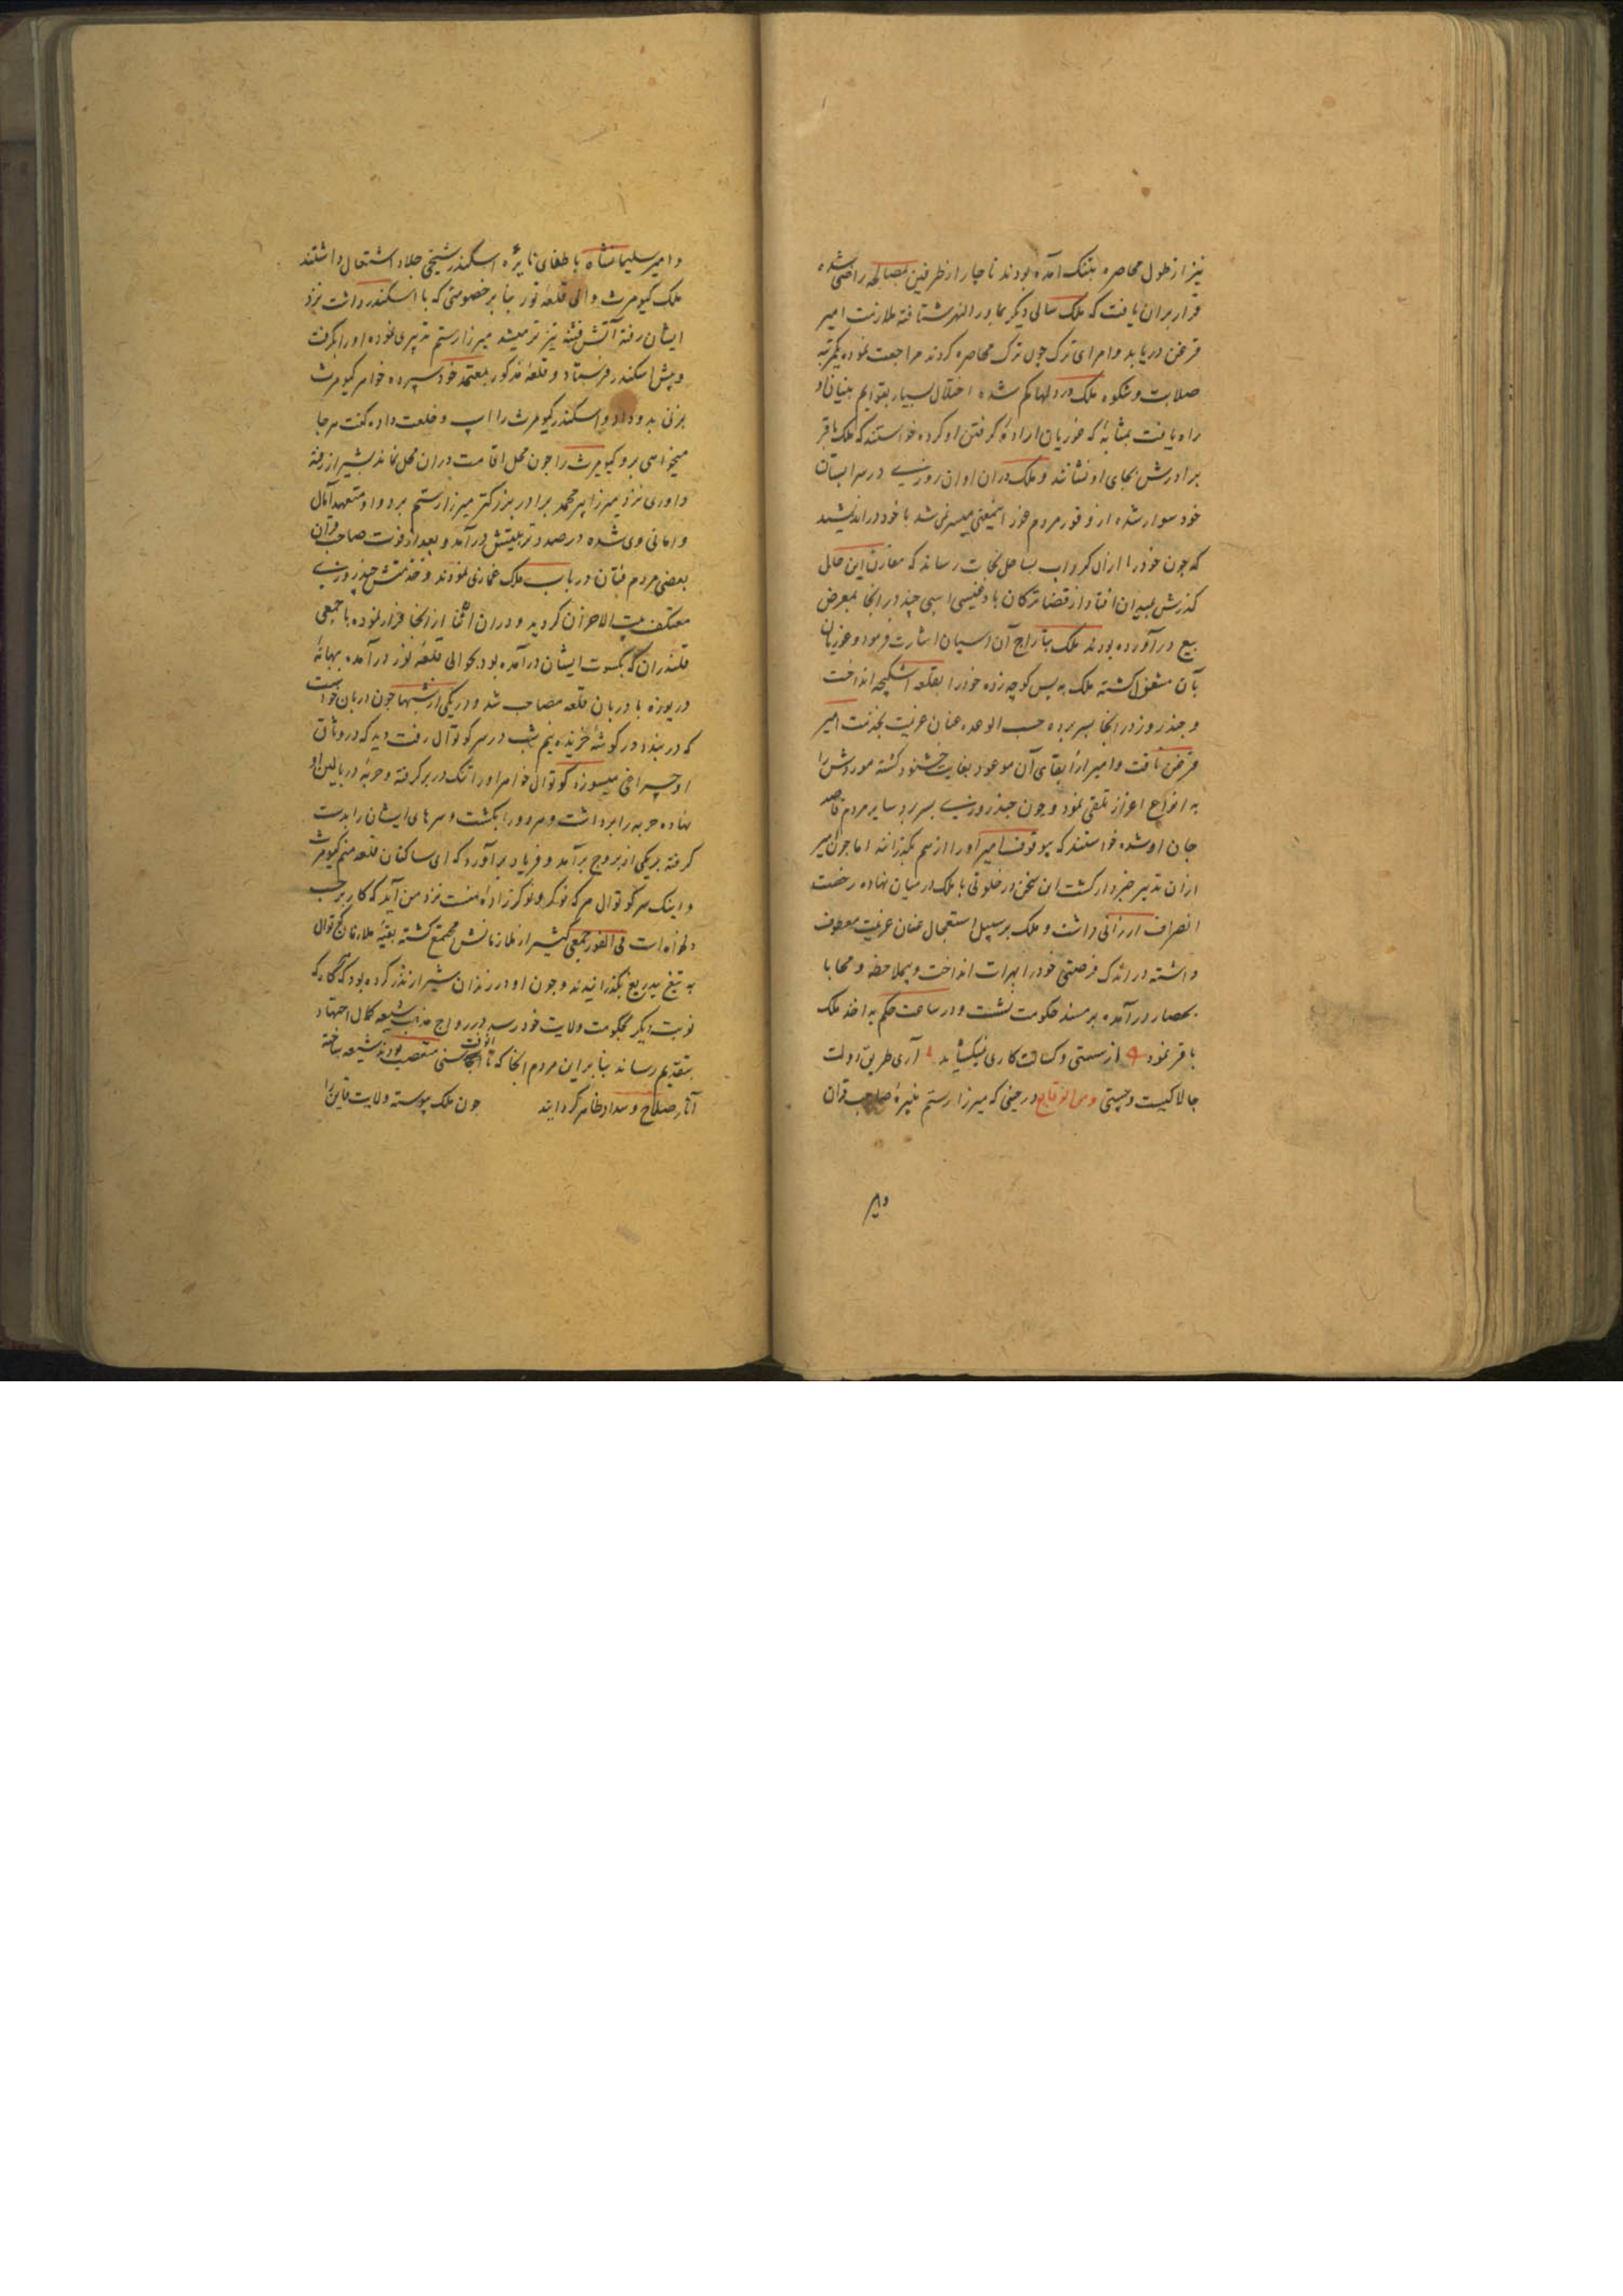 نیز از طول محاصره بتنک آمده بودند ناچار از طرفین بمصالحه راضی شده
قرار بران یافت که ملک سالی دیکر بماورالنهر شتافته ملازمت امیر
قزغن دریابد و امرای ترک چون ترک محاصره کردند مراجعت نموده یکمرتبه
صلابت و شکوه ملک در دلها کم شده اختلال بسیار بقوایم بنیان او
راه یافت بمثابهٔ که غوریان ارادهٔ کرفتن او کرده خواستند که ملک باقر
برادرش بجای او نشانند و ملک دران اوان روزی در سرابستان
خود سوار شده از وفور مردم غور اینمعنی میسر نمی شد با خود در اندیشید
که چون خود را ازان کرداب بساحل نجات رساند که مقارن این حال
کذرش بمیدان افتاد از قضا ترکان بادغیسی اسبی چند در انجا بمعرض
بیع در آورده بودند ملک بتاراج آن اسپان اشارت فرمود و غوریان
بآن مشغول کشته ملک به پس کوچه زده خود را بقلعه اشکیجه انداخت
و چند روز در انجا بسر برده حسب الوعده عنان عزیمت بخدمت امیر
قزغن تافت و امیر از ایفای آن موعود بغایت خشنود کشته موردش را
به انواع اعزاز تلقی نمود و چون چند روزی بسر برد سایر مردم قاصد
جان او شده خواستند که بیوقوف امیر او را از هم بکذرانند اما چون امیر
ازان تدبیر خبردار کشت این سخن در خلوتی با ملک در میان نهاده رخصت
انصراف ارزانی داشت و ملک بر سبیل استعجال عنان عزیمت معطوف
داشته در اندک فرصتی خود را بهرات انداخت و بیملاحظه و محابا
بحصار در آمده بر مسند حکومت نشست و در ساعت حکم به اخذ ملک
باقر نمود از سستی و کسالت کاری نیکشاید آری طریق دولت
چالاکیست و چستی و من الوقایع در حینی که میرزا رستم نبیرهٔ صاحب قران
و امیر
و امیر سلیمانشاه باطفای نایرهٔ اسکندر شیخی جلاد اشتغال داشتند
ملک کیومرث والی قلعهٔ نور بنا بر خصومتی که با اسکندر داشت نزد
ایشان رفته آتش فتنه تیزتر میشد میرزا رستم تدبیری نموده او را بکرفت
و پیش اسکندر فرستاد و قلعهٔ مذکور بمعتمد خود سپرده خواهر کیومرث
بزنی بدو داد و اسکندر کیومرث را اسپ و خلعت داده کفت هر جا
میخواهی برو کیومرث را چون محل اقامت دران محل نماند بشیراز رفته
داوری نزد میرزا پیر محمد برادر بزرکتر میرزا رستم برد و او متعهد آمال
و امانی وی شده در صدد تربیتش در آمد و بعد از فوت صاحب قران
بعضی مردم فتان در باب ملک غمازی نمودند و خدمتش چند روزی
معتکف بیت الاحزان کردید و دران اثنا از انجا فرار نموده با جمعی
قلندران که بکسوت ایشان در آمده بود بحوالی قلعهٔ نور در آمده ببهانهٔ
دریوزه با دربان قلعه مصاحب شد و در یکی از شبها چون دربان خواست
که در بندد در کوشهٔ خزیده نیم شب در سر کوتوال رفت دید که در وثاق
او چراغی میسوزد کوتوال خواهر او را تنک در بر کرفته و حربهٔ در بالین او
نهاده حربه را برداشت و هر دو را بکشت و سرهای ایشان را بدست
کرفته بر یکی از بروج برآمد و فریاد برآورد که ای ساکنان قلعه منم کیومرث
و اینک سر کوتوال هر که نوکر و نوکرزادهٔ منست نزد من آید که کار بر حسب
دلخواه است فی الفور جمعی کثیر از ملازمانش مجتمع کشته بقیهٔ ملازمان کوتوال
به تیغ بیدریغ بکذرانیدند و چون او در زندان شیراز نذر کرده بود که هرکاه که
نوبت دیکر بحکومت ولایت خود رسد در رواج مذهب شیعه کمال اجتهاد
بتقدیم رساند بنا برین مردم انجا که تا آنوقت سنی متعصب بودند شیعه ساخته
آثار صلاح و سداد ظاهر کردانید چون ملک پیوسته ولایت قاین را